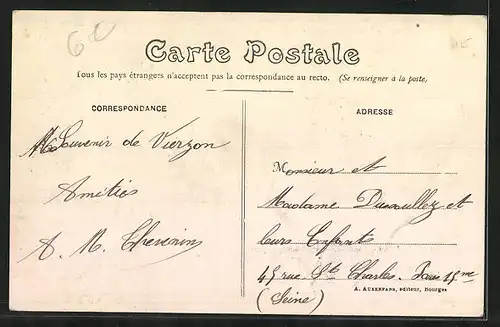 60
Carte Postale
Tous les pays étrangers n'acceptent pas la correspondance au recto. (Se renseigner à la poste)
CORRESPONDANCE
ADRESSE
Souvenir de Vierzon
Amitiés
A. M. Thevenin
Monsieur et
Madame et
leurs Enfants
45 rue St Charles. Paris 15me
(Seine)
A. AUXENFANS, éditeur, Bourges